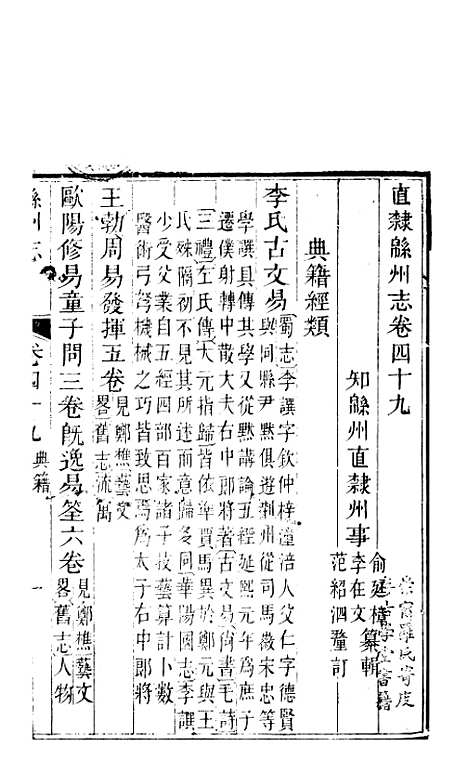 直隸緜州志卷四十九
知緜州直隸州事
俞廷樟 纂輯
李在文
范紹泗 釐訂
典籍經類
李氏古文易
蜀志李譔字欽仲梓潼涪人父仁字德賢
與同縣尹默俱遊荆州從司馬徽宋忠等
學譔具傳其學又從默講論五經延熙元年爲庶子
遷僕射轉中散大夫右中郎將著古文易尚書毛詩
三禮左氏傳大元指歸皆依準賈馬異於鄭元與王
氏殊隔初不見其所述而意歸多同華陽國志李譔
少受父業自五經四部百家諸子技藝算計卜數
醫術弓弩機械之巧皆致思焉爲太子右中郎將
王勃周易發揮五卷
見鄭樵藝文
畧舊志流寓
歐陽修易童子問三卷旣逸易筌六卷
見鄭樵藝文
畧舊志人物
緜州志
卷四十九 典籍
一